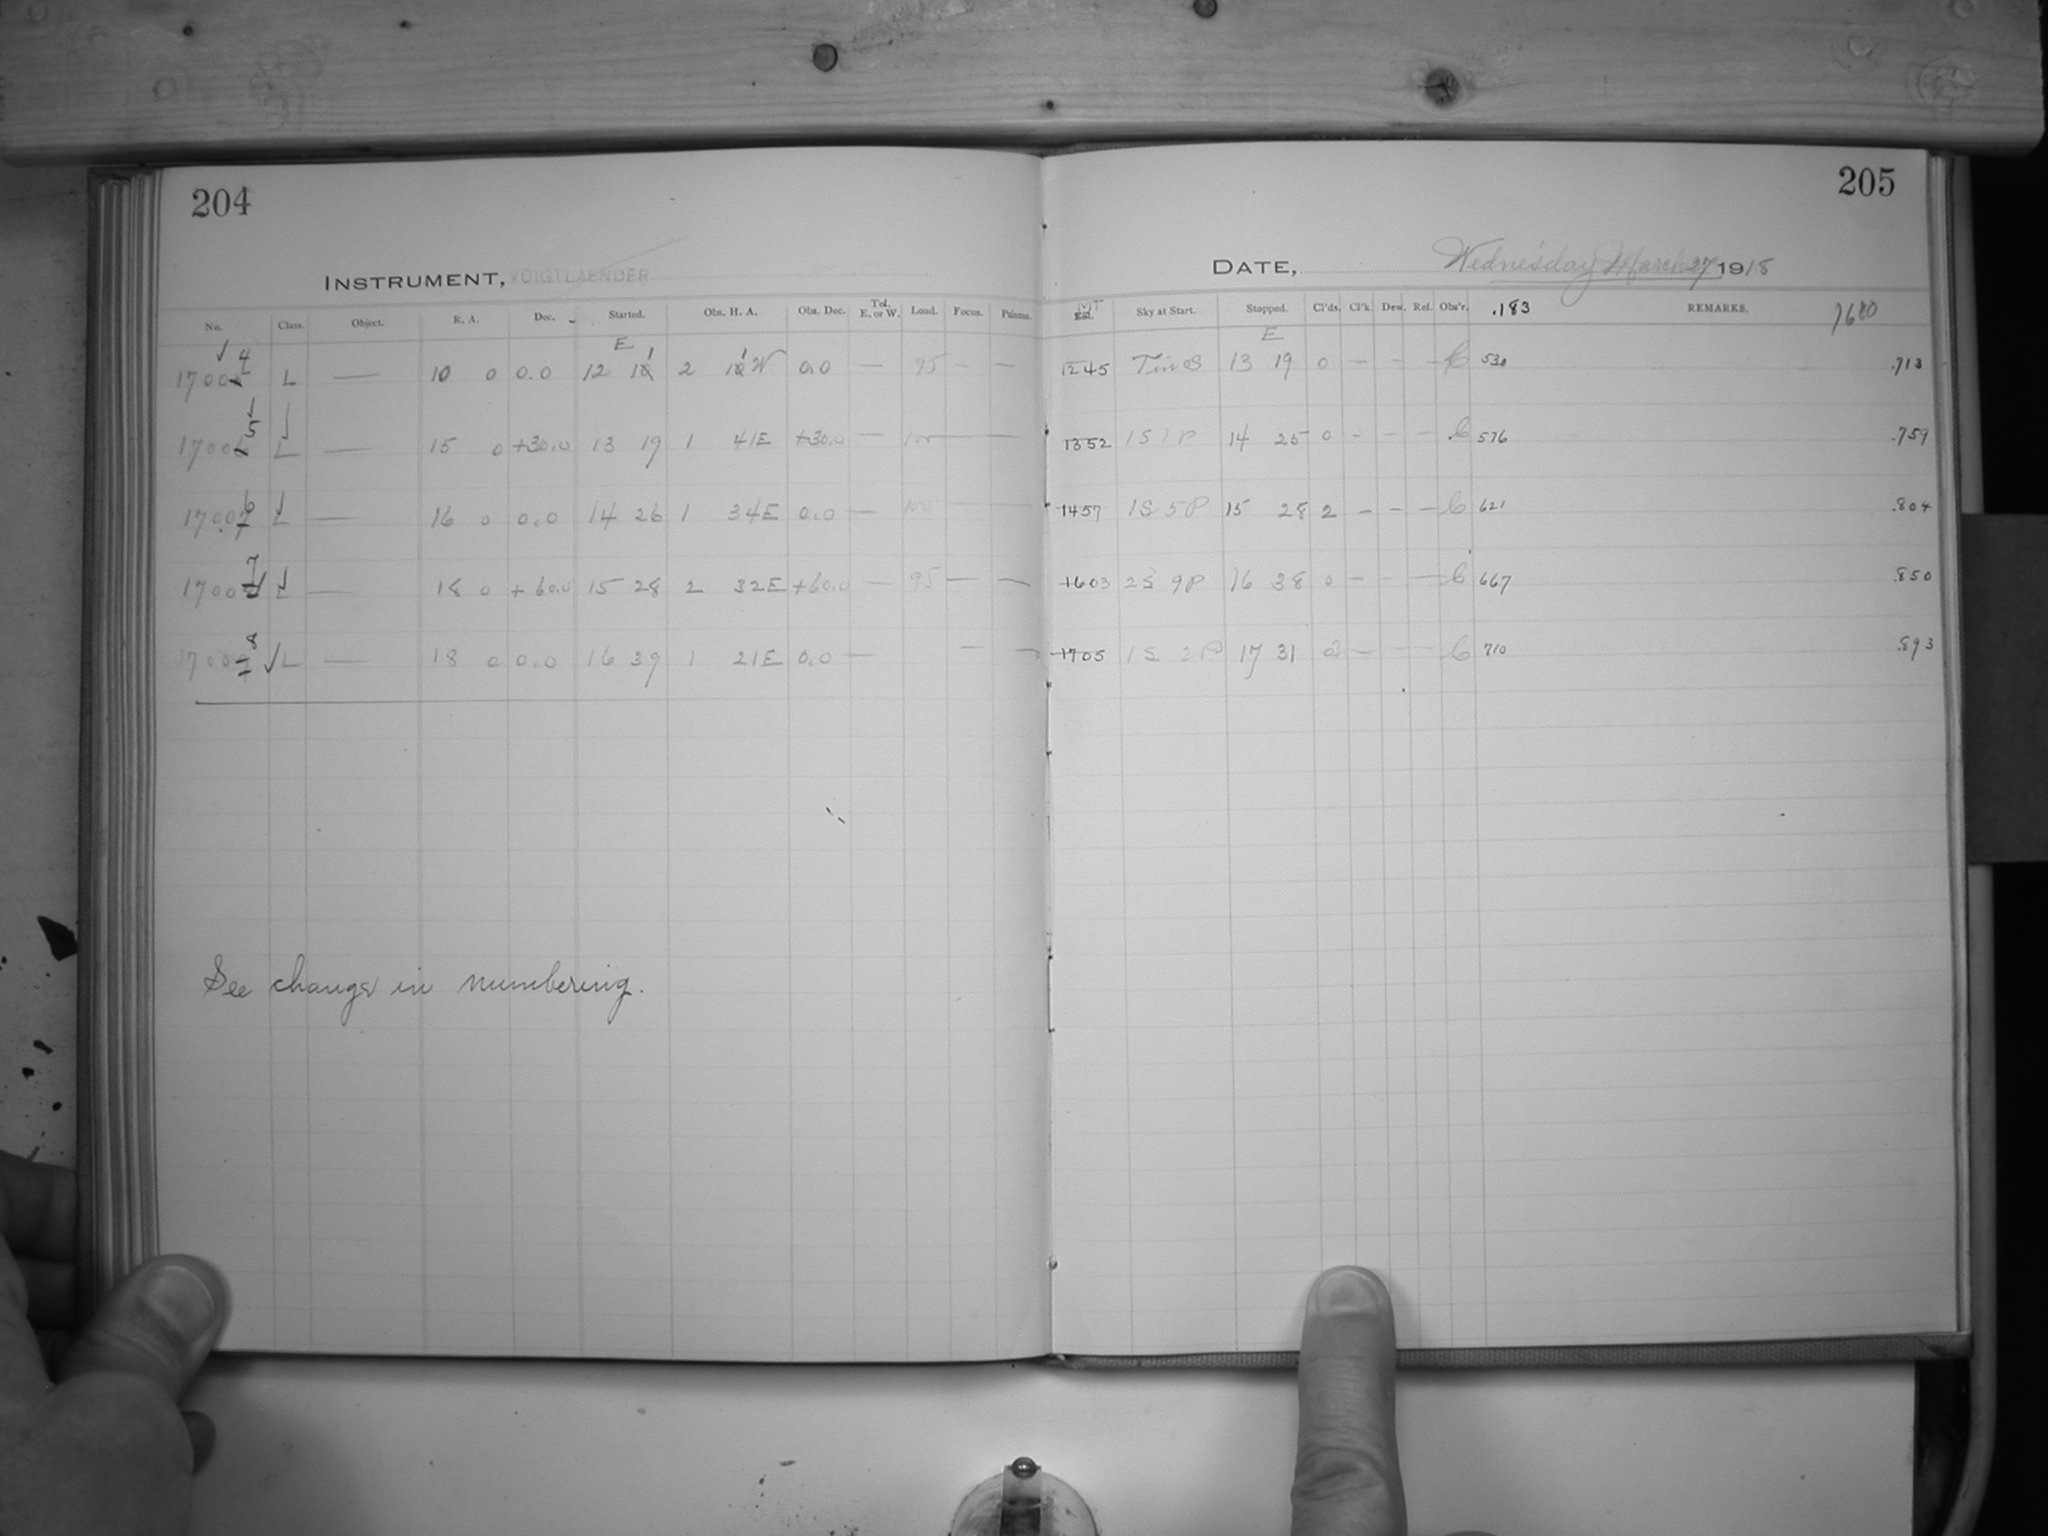 204
INSTRUMENT, VOIGTLAENDER
No. Class. Object. R. A. Dec. Started. Obs. H. A. Obs. Dec. Tel. E. or W. Load. Focus. Prisms.
4 E 1 1
1700 L — 10 0 0.0 12 10 2 10 W 0.0 — 95 — —
5
1700 L — 15 0 +30.0 13 19 1 41E +30.0 — 100 — —
6
1700 L — 16 0 0.0 14 26 1 34E 0.0 — 100
7
1700 L — 18 0 +60.0 15 28 2 32E +60.0 — 95 — —
8
1700 L — 18 0 0.0 16 39 1 21E 0.0 — — —
See change in numbering.
205
DATE, Wednesday March 27 1918
Sky at Start. Stopped. Cl'ds. Cl'k. Dew. Ref. Obs'r. .183 REMARKS. 7680
E
1245 13 19 0 — — — C 530 .713
1352 1S 1P 14 25 0 — — — C 576 .759
1457 1S 5P 15 28 2 — — — C 621 .804
1603 2S 9P 16 38 0 — — — C 667 .850
1705 1S 2P 17 31 — — — C 710 .893